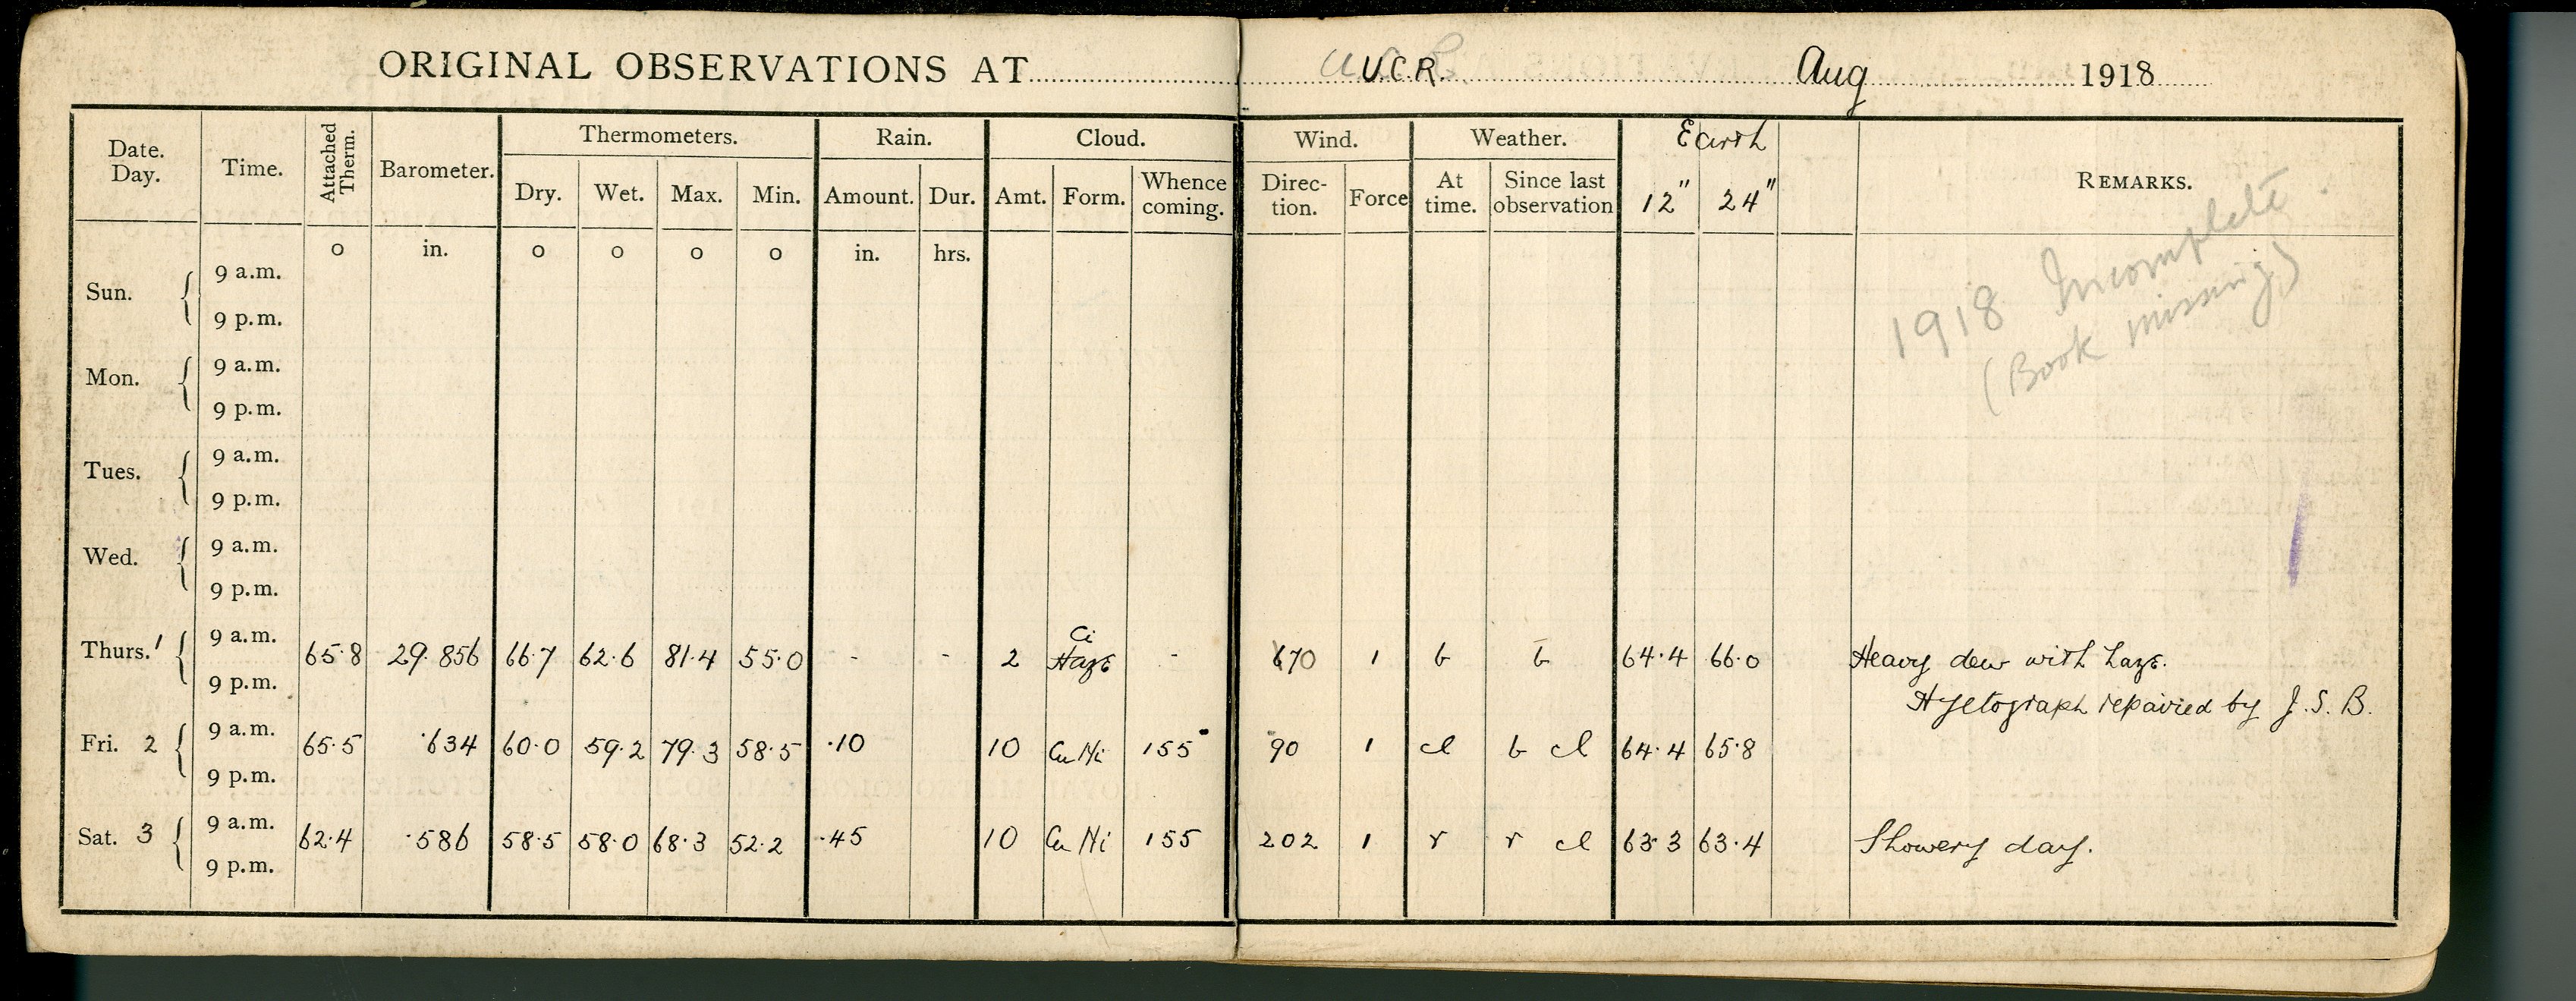 ORIGINAL OBSERVATIONS AT U.C.R. Aug 1918
Date. Day. Time. Attached Therm. Barometer. Thermometers. Rain. Cloud. Wind. Weather. Earth REMARKS.
Dry. Wet. Max. Min. Amount. Dur. Amt. Form. Whence coming. Direction. Force At time. Since last observation 12" 24"
o in. o o o o in. hrs.
1918 Incomplete
(Book missing)
Sun. 9 a.m.
9 p.m.
Mon. 9 a.m.
9 p.m.
Tues. 9 a.m.
9 p.m.
Wed. 9 a.m.
9 p.m.
Thurs. 1 9 a.m. 65.8 29.856 66.7 62.6 81.4 55.0 - - 2 Ci Haze - 70 1 b b 64.4 66.0 Heavy dew with haze.
9 p.m. Hyetograph repaired by J.S.B.
Fri. 2 9 a.m. 65.5 .634 60.0 59.2 79.3 58.5 .10 10 Cu Ni 155 90 1 cl b cl 64.4 65.8
9 p.m.
Sat. 3 9 a.m. 62.4 .586 58.5 58.0 68.3 52.2 .45 10 Cu Ni 155 202 1 r r cl 63.3 63.4 Showery day.
9 p.m.